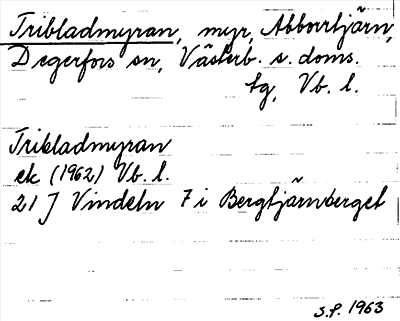 Tribladmyran, myr, Abborrtjärn,
Degerfors sn, Västerb. s. doms.
tg, Vb. l.
Tribladmyran
ek (1962) Vb. l.
21 J Vindeln 7 i Bergtjärnberget
S.P. 1963